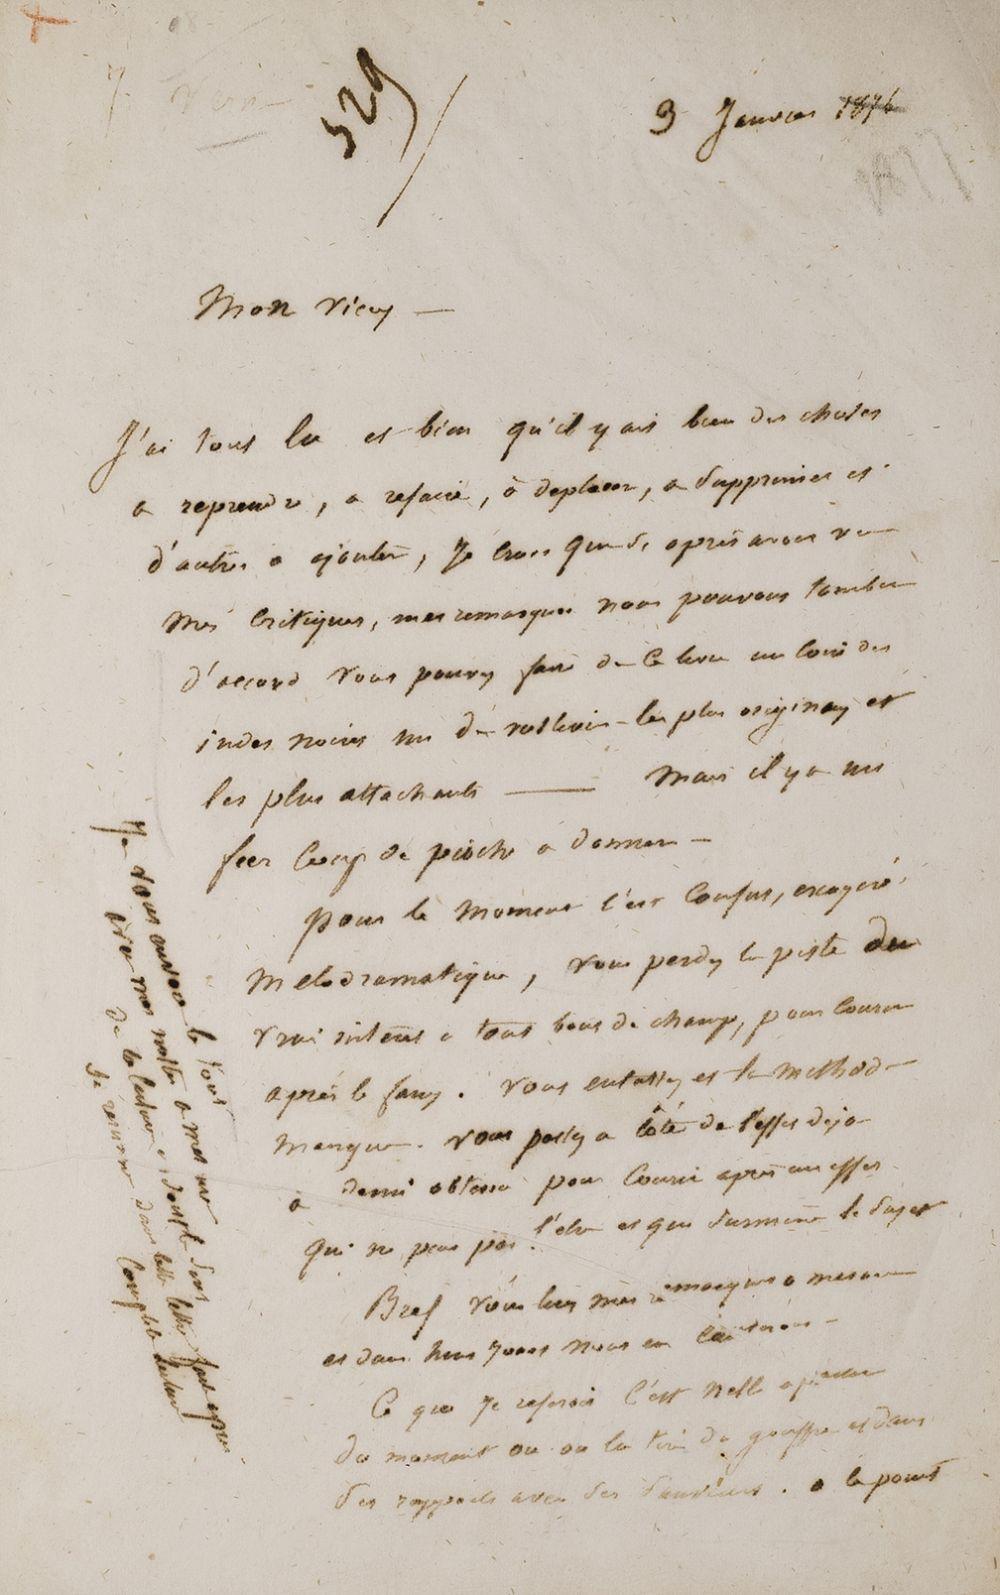 529
3 Janvier 1876
Mon vieux —
J'ai tout lu et bien qu'il y ait bien des choses
a reprendre, a refaire, à deplacer, a supprimer et
d'autres a ajouter, Je crois que si apres avoir vu
mes critiques, mes remarques nous pouvons tomber
d'accord vous pouvez faire de ce livre un coin des
indes noires un de vos livres les plus originaux et
les plus attachants —— Mais il y a un
fier coup de pioche a donner —
pour le moment c'est confus, exagéré,
melodramatique, vous perdez la piste du
vrai interet a tout bout de champ, pour courir
après le faux. vous entassez et la methode
manque. vous passez a côté de l'effet deja
a demi obtenu pour courir apres un effet
qui ne peut pas l'etre et que surmene le sujet
Bref vous lirez mes remarques a mesure
et dans huit jours nous en causerons —
Ce que je referais c'est Nell a partir
du moment ou on la tire du gouffre et dans
ses rapports avec ses sauveurs. a le point
Je vous envoie le tout
avec mes notes a mesure
de la lecture et
je resume dans cette lettre faite apres
complete lecture